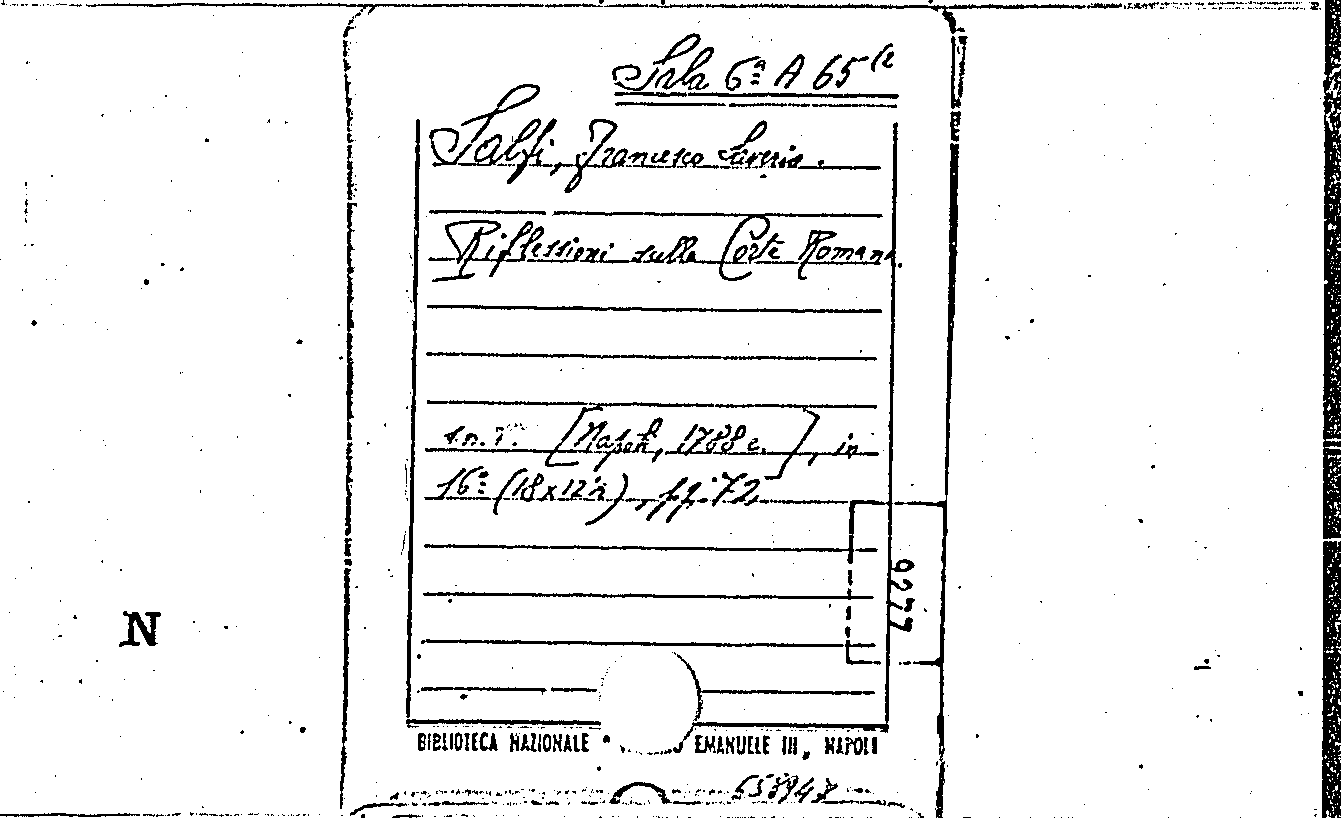 Sala 6ª A 65
Salfi, Francesco Saverio.
Riflessioni sulla Corte Romana.
s.n.t. [Napoli, 1788 c.], in
16º (18x12½), pp. 72
9277
N
BIBLIOTECA NAZIONALE EMANUELE III, NAPOLI
558947